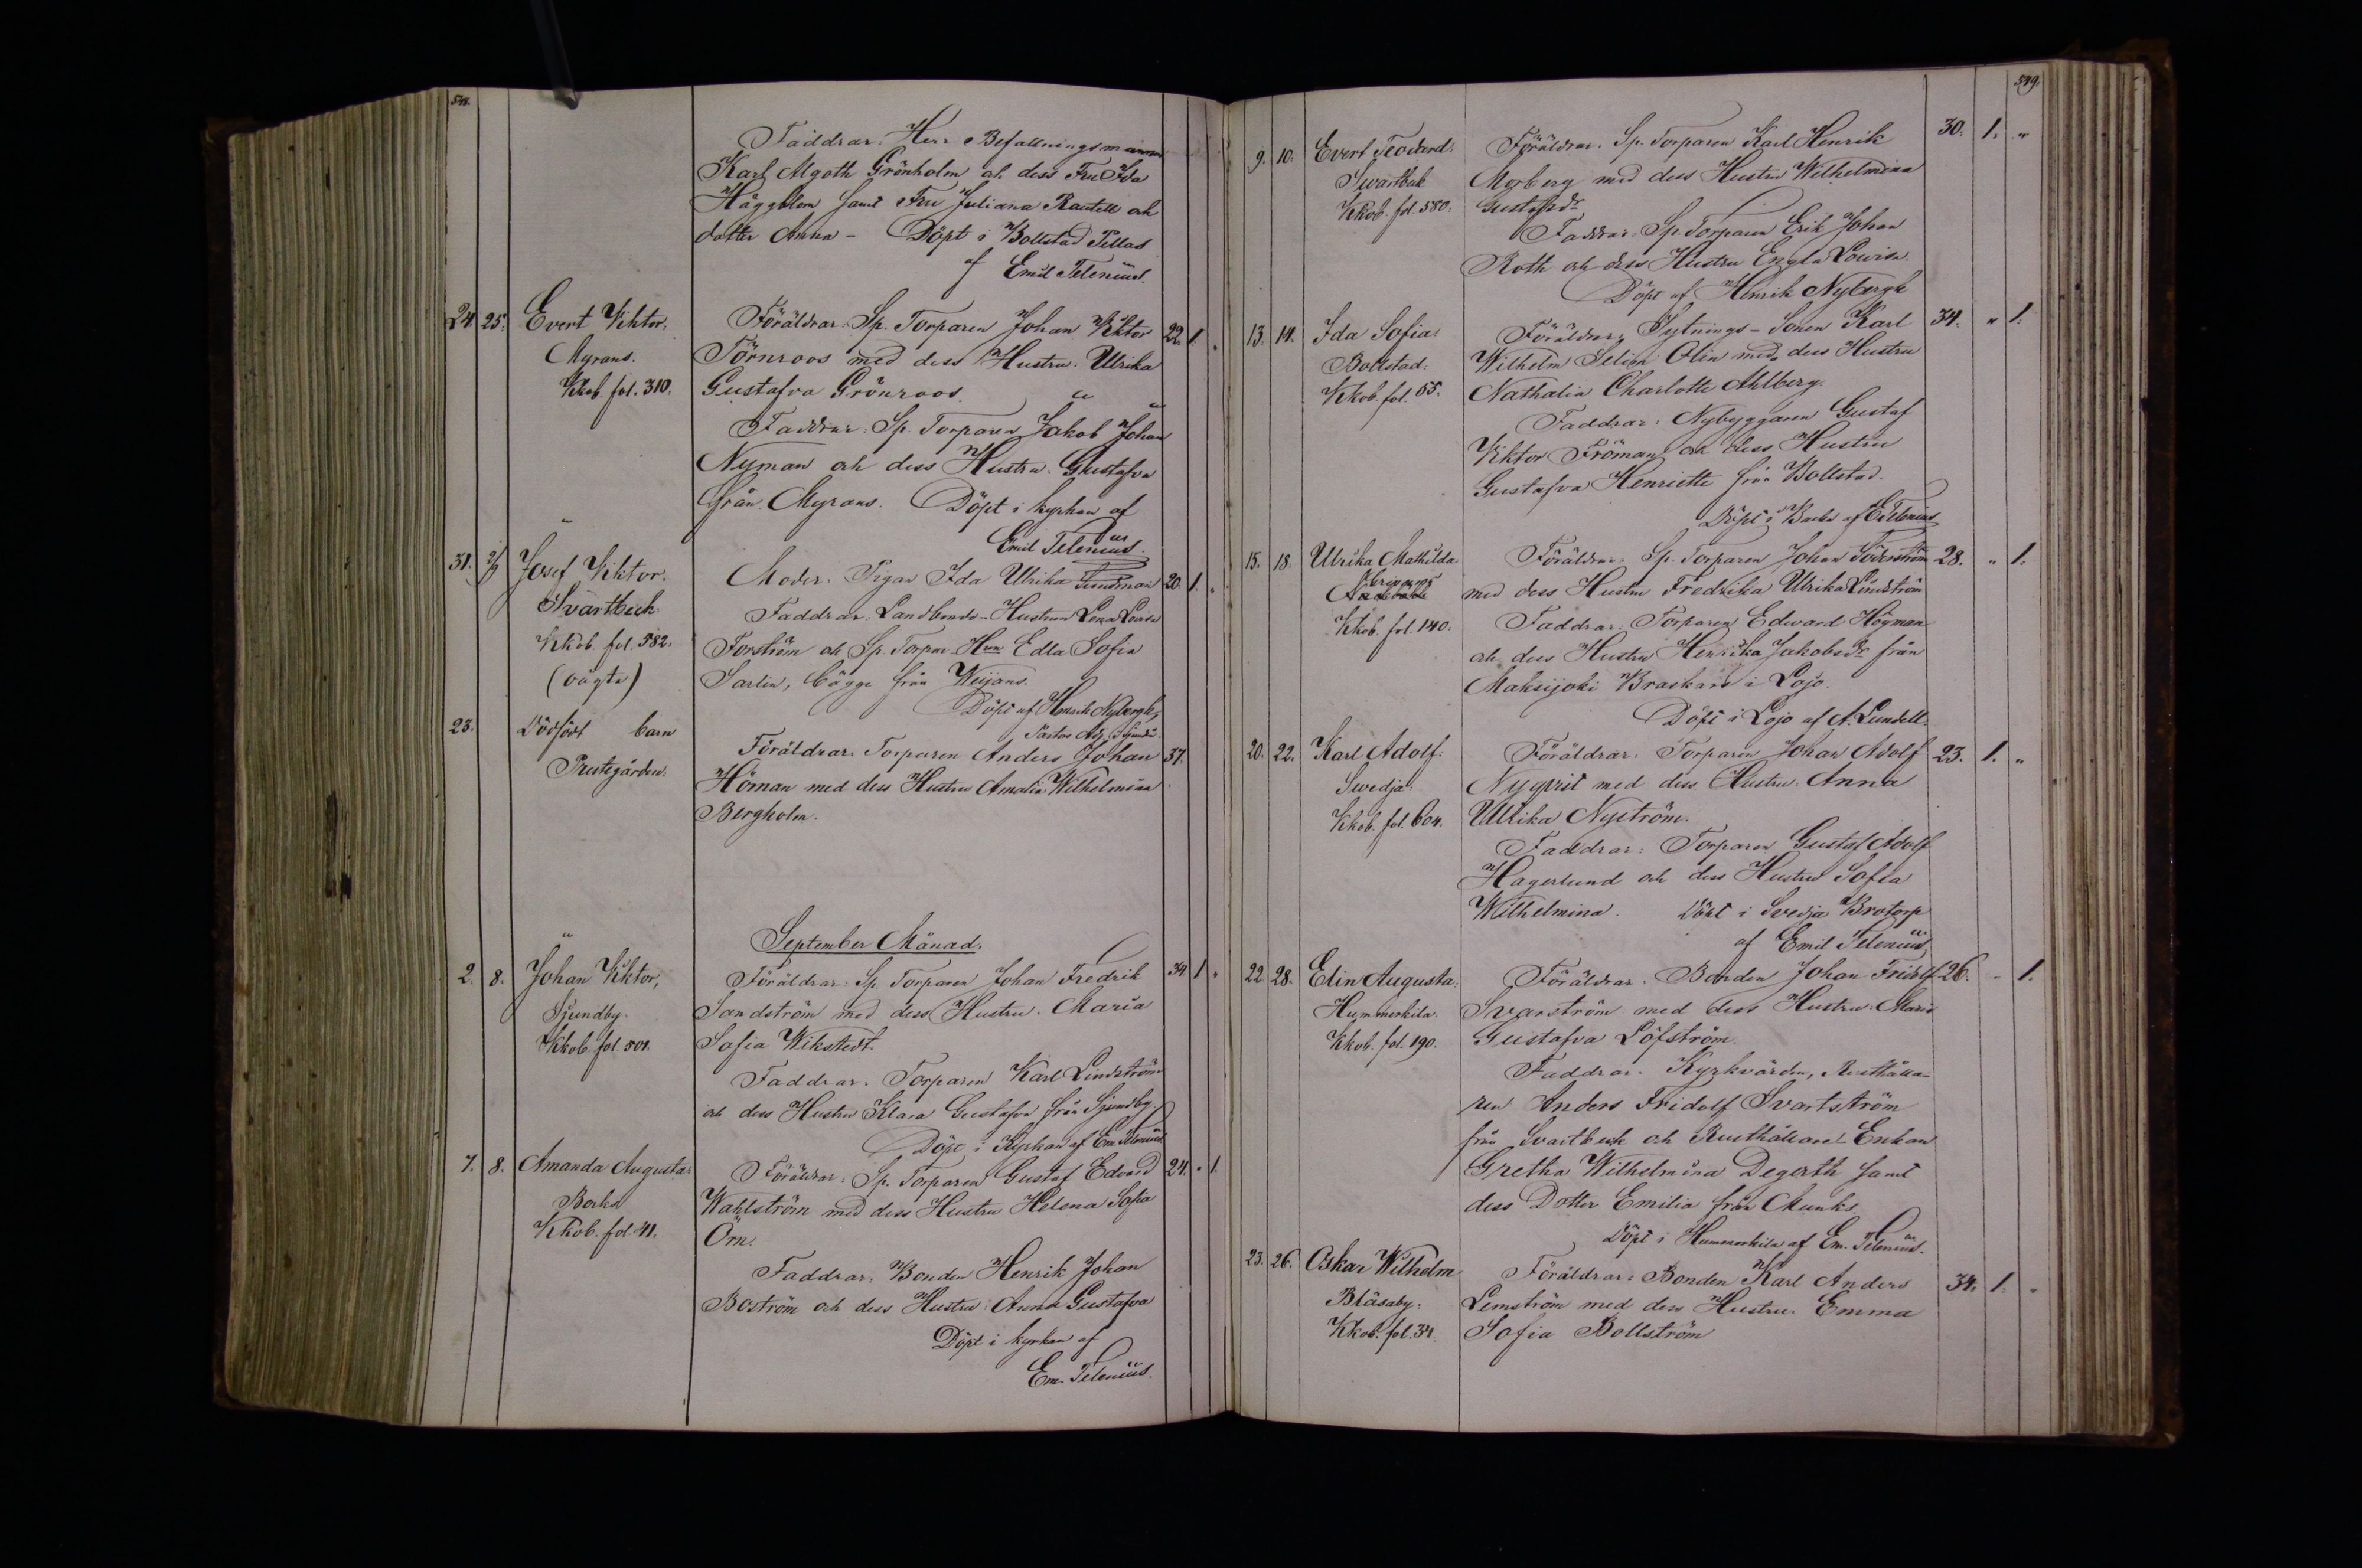 548.
Faddrar: Herr Befallningsmannen
Karl Agoth Grönholm och dess Fru Ida
Häggblom samt Fru Juliana Rautell och
dotter Anna - Döpt i Bollstad Pellas
af Emil Telenius.
24. 25. Evert Viktor. Föräldrar: Sp. Torparen Johan Viktor 22. 1. "
Myrans. Törnroos med dess Hustru Ulrika
Kkob. fol. 310. Gustafva Grönroos.
Faddrar: Sp. Torparen Jakob Johan
Nyman och dess Hustru Gustafva
från Myrans. Döpt i kyrkan af
Emil Telenius.
31. Josef Viktor. Moder: Pigan Ida Ulrika 20. 1. "
Svartbeck. Faddrar: Landbonde-Hustrun Lena Lovisa
Kkob. fol. 582. Forström och Sp. Torpar-Hun Edla Sofia
(oägta) Sarlin, bägge från Weijans.
Döpt af Henrik Nybergh,
Pastor Adj. i Sjundeå.
23. Dödfödt barn Föräldrar: Torparen Anders Johan 37.
Prestgården. Höman med dess Hustru Amalia Wilhelmina
Bergholm.
September Månad.
2. 8. Johan Viktor, Föräldrar: Sp. Torparen Johan Fredrik 34 1 "
Sjundby. Sandström med dess Hustru Maria
Kkob. fol. 501. Sofia Wikstedt.
Faddrar: Torparen Karl Lindström
och dess Hustru Klara Gustafva från Sjundby
Döpt i Kyrkan af Em. Telenius
7. 8. Amanda Augusta. Föräldrar: Sp. Torparen Gustaf Edvard 24. " 1.
Backa Wahlström med dess Hustru Helena Sofia
Kkob. fol. 41. Örn.
Faddrar: Bonden Henrik Johan
Boström och dess Hustru Anna Gustafva
Döpt i kyrkan af
Em. Telenius.
549.
9. 10. Evert Teodard. Föräldrar: Sp. Torparen Karl Henrik 30. 1. "
Svartbäck Morberg med dess Hustru Wilhelmina
Kkob. fol. 580. Gustafsdr
Faddrar: Sp. Torparen Erik Johan
Roth och dess Hustru Engla Lovisa.
Döpt af Henrik Nybergh
13. 14. Ida Sofia. Föräldrar: Sytnings-Sonen Karl 34. " 1.
Bollstad. Wilhelm Selim Olin med dess Hustru
Kkob. fol. 55. Nathalia Charlotte Ahlberg.
Faddrar: Nybyggaren Gustaf
Viktor Fröman och dess Hustru
Gustafva Henriette från Bollstad.
Döpt i Backa af E. Telenius
15. 18. Ulrika Mathilda Föräldrar: Sp. Torparen Johan Söderström 28. " 1.
med dess Hustru Fredrika Ulrika Lindström
Kkob. fol. 140. Faddrar: Torparen Edward Högman
och dess Hustru Henrika Jakobsdr från
Maksijoki Braskars i Lojo.
Döpt i Lojo af A. Lundell.
20. 22. Karl Adolf. Föräldrar: Torparen Johan Adolf 23. 1. "
Swedja. Nyqvist med dess Hustru Anna
Kkob. fol. 604. Ulrika Nyström.
Faddrar: Torparen Gustaf Adolf
Hagerlund och dess Hustru Sofia
Wilhelmina. Döpt i Svedja Brotorp
af Emil Telenius
22 28. Elin Augusta. Föräldrar: Bonden Johan Fridolf 26. " 1.
Hummerkila. Svarström med dess Hustru Maria
Kkob. fol. 190. Gustafva Löfström.
Faddrar: Kyrkvärden, Rusthålla-
ren Anders Fridolf Svartström
från Svartbeck och Rusthållare Enkan
Gretha Wilhelmina Degerth samt
dess Dotter Emilia från Munks.
Döpt i Hummerkila af Em. Telenius.
23. 26. Oskar Wilhelm Föräldrar: Bonden Karl Anders 34. 1. "
Blåsaby. Lemström med dess Hustru Emma
Kkob. fol. 34. Sofia Bollström